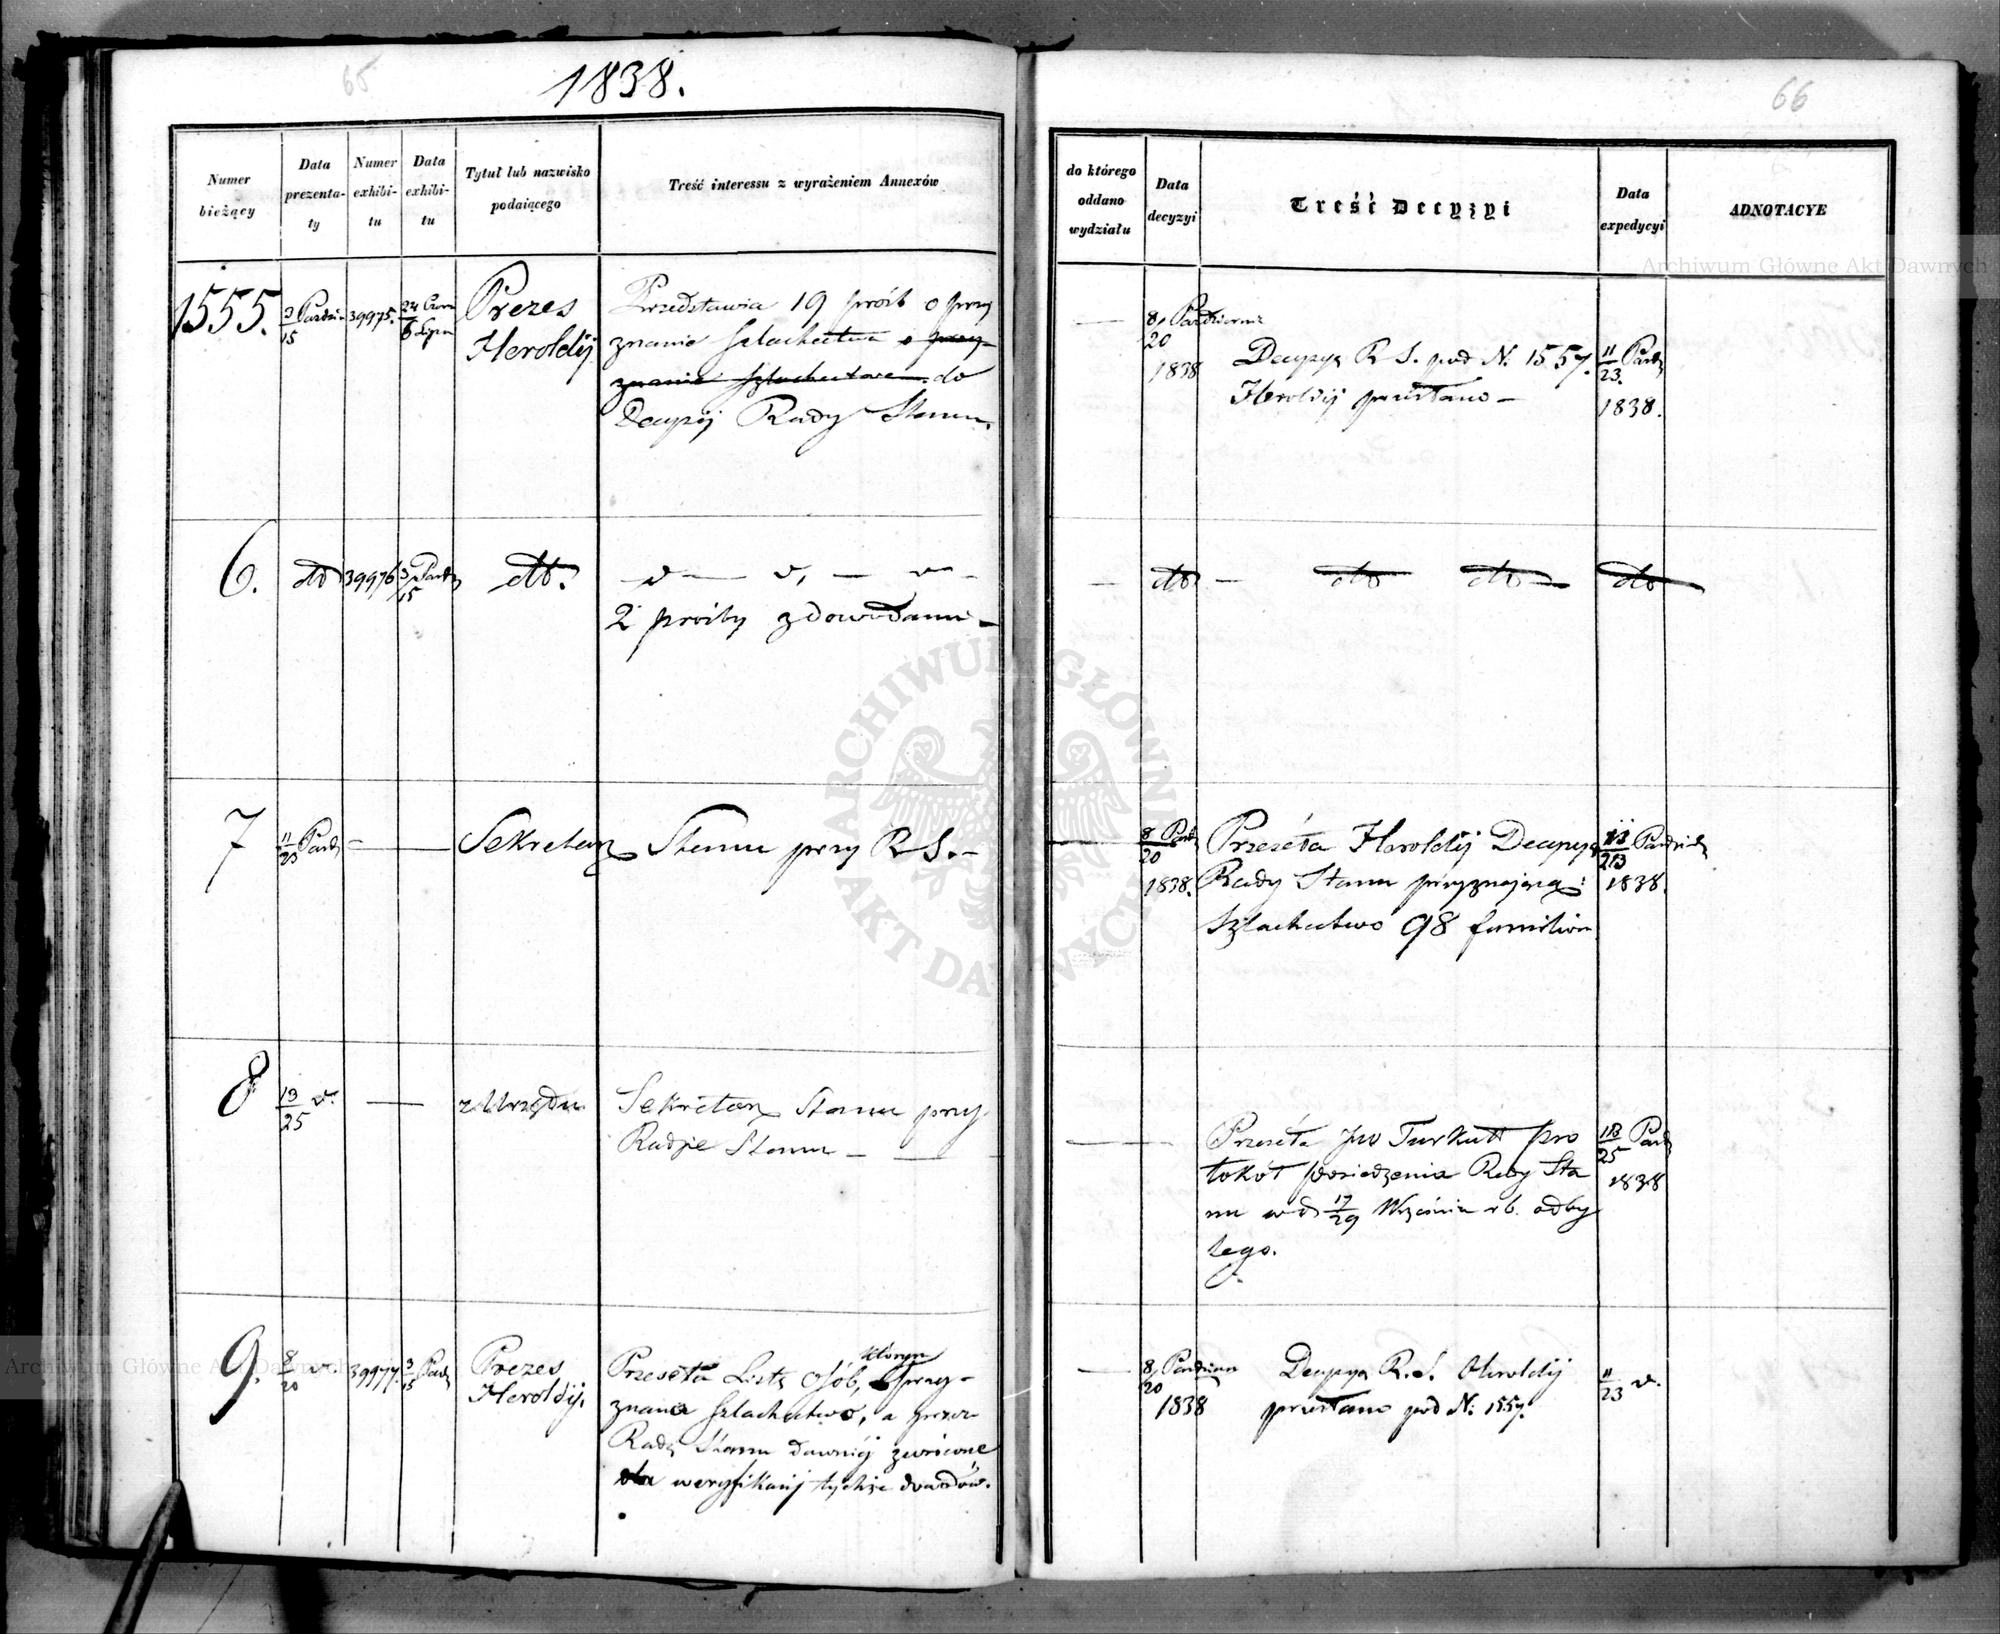 65
1838.
66
Numer bieżący
Data prezenta-ty
Numer exhibi-tu
Data exhibi-tu
Tytuł lub nazwisko podaiącego
Treść interessu z wyrażeniem Annexów
do którego oddano wydziału
Data decyzyi
Treść Decyzyi
Data expedycyi
ADNOTACYE
1555.
3/15 Paździer
39975.
24 Czerw
6 Lipca
Prezes
Heroldij
Przedstawia 19 próśb o przy
znanie szlachectwa o przy-
znanie szlachectwa do
Decyzij Rady Stanu.
8/20 Październi
1838
Decyzya R S. pod N. 1557.
Heroldij przesłano –
11/23. Paźdz
1838.
6.
dto
39976
3/15 Paźdz
dto.
– v – v, – v –
2 prośby z dowodami –
– dto – dto dto dto
7
11/23 Paźdz
–
Sekretarz Stanu przy R S. –
8/20 Paźdz
1838.
Przeséła Heroldij Decyzyą
Rady Stanu przyznającą
Szlachectwo 98 familiom
11/23 Paździer
1838.
8
13/25 v.
–
z Urzędu
Sekretarz Stanu przy
Radzie Stanu –
Przeséła JW Turkułł pro
tokół posiedzenia Rady Sta
nu w d 17/29 Września rb. odby
tego.
13/25 Paźdz
1838
9.
8/20 v.
39977.
3/15 Paźdz
Prezes
Heroldij.
którym
Przeséła Listę osób, przy-
znano szlachectwo, a przez
Radę Stanu dawniéj zwrócone
dla weryfikacij tychże dowodów.
8/20 Paździer
1838
Decyzya R. S. Heroldij
przesłano pod N: 1557.
11/23 v.
Archiwum Główne Akt Dawnych
Archiwum Główne Akt Dawnych
ARCHIWUM GŁÓWNE
AKT DAWNYCH